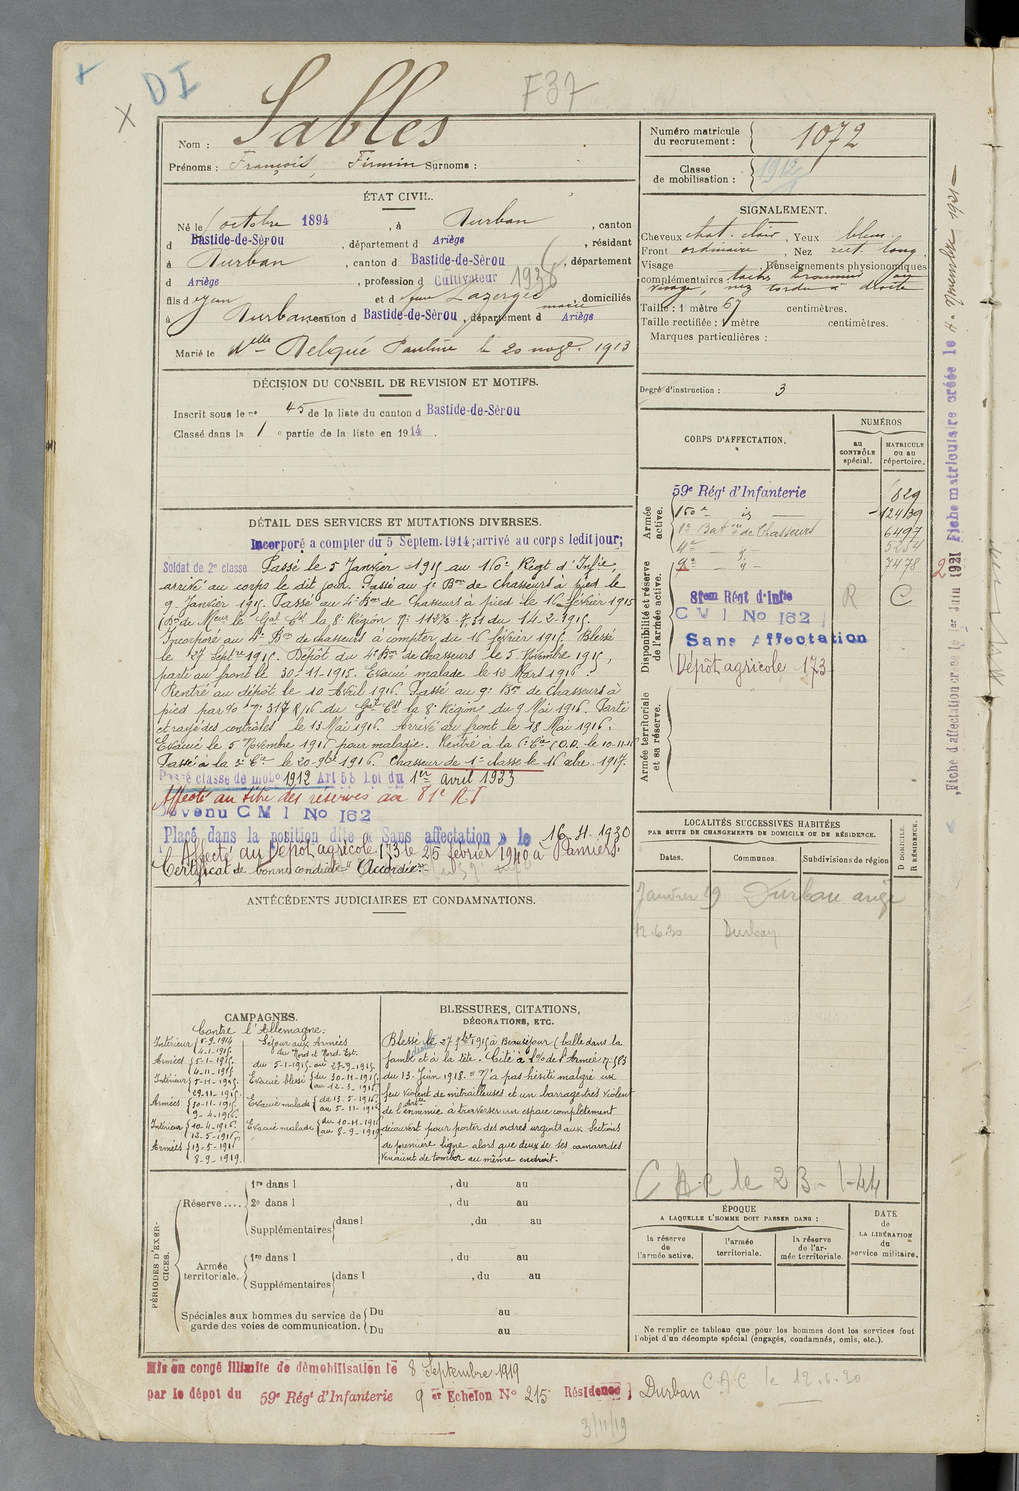 DI
F37
Nom : Sables
Prénoms : François, Firmin Surnoms :
Numéro matricule du recrutement : 1072
Classe de mobilisation : 1912
ÉTAT CIVIL.
Né le octobre 1894, à Durban, canton
d Bastide-de-Sèrou, département d Ariège, résidant
à Durban, canton d Bastide-de-Sèrou, département
d Ariège, profession d Cultivateur 1936
fils d Jean et d Lazerges, domiciliés
à Durban canton d Bastide-de-Sèrou, département d Ariège
Marié le Delqué Pauline le 20 1913
SIGNALEMENT.
Cheveux chat. clair, Yeux bleus
Front ordinaire, Nez rect. long,
Visage Renseignements physionomiques
complémentaires : tache au
visage, nez tordu à droite
Taille : 1 mètre 67 centimètres.
Taille rectifiée : 1 mètre centimètres.
Marques particulières :
Degré d'instruction : 3
DÉCISION DU CONSEIL DE REVISION ET MOTIFS.
Inscrit sous le n° 45 de la liste du canton d Bastide-de-Sèrou
Classé dans la 1 e partie de la liste en 1914.
CORPS D'AFFECTATION.
NUMÉROS
au CONTRÔLE spécial.
MATRICULE ou au répertoire.
Armée active.
59e Régt d'Infanterie 829
160e id 12439
1er Bat on de Chasseurs 6497
4e 5254
9e 7478
Disponibilité et réserve de l'armée active.
81em Régt d'Infie R C
C M I No 162
Sans Affectation
Dépôt agricole 173
Armée territoriale et sa réserve.
DÉTAIL DES SERVICES ET MUTATIONS DIVERSES.
Incorporé a compter du 5 Septem. 1914; arrivé au corps ledit jour;
Soldat de 2e classe Passé le 5 Janvier 1915 au 160e Régt d'Infie,
arrivé au corps le dit jour. Passé au 1er Bon de Chasseurs à pied le
9 Janvier 1915. Passé au 4e Bon de Chasseurs à pied le 16 février 1915
Incorporé au 4e Bon de chasseurs à compter du 16 février 1915. Blessé
le 27 Septre 1915. Dépôt du 4e Bon de chasseurs le 5 Novembre 1915,
parti au front le 30-11-1915. Evacué malade le 12 Mars 1916.
Rentré au dépôt le 10 Avril 1916. Passé au 9e Bon de Chasseurs à
pied par 8/16 du Gal Ct la 8e Région du 9 Mai 1916. Parti
et rayé des contrôles le 13 Mai 1916. Arrivé au front le 18 Mai 1916.
Evacué le 5 Novembre 1916 pour maladie. Rentré à la 6e Cie C.I.D. le 10-11-16
Passé à la 5e Cie le 20-9bre 1916. Chasseur de 1e classe le 16 1917.
Passé classe de mobo 1912 Art 58 Loi du 1er avril 1933
Affecté au titre des réserves au 81e RI
Devenu C M I No 162
Placé dans la position dite « Sans affectation » le 16-11-1930
Affecté au Dépôt agricole 173 le 25 février 1940 à Pamiers.
Certificat de bonne conduite "Accordé"
ANTÉCÉDENTS JUDICIAIRES ET CONDAMNATIONS.
LOCALITÉS SUCCESSIVES HABITÉES
PAR SUITE DE CHANGEMENTS DE DOMICILE OU DE RÉSIDENCE.
Dates. Communes. Subdivisions de région
D DOMICILE. R RÉSIDENCE.
Janvier 19 Durban
12-6-30 Durban
CAMPAGNES.
Contre l'Allemagne:
Intérieur 5-9-1914
4-1-1915
Armées 5-1-1915
4-11-1915
Intérieur 5-11-1915
29-11-1915
Armées 30-11-1915
9-4-1916
Intérieur 10-4-1916
12-5-1916
Armées 13-5-1916
8-9-1919
Séjour aux Armées
du Nord et Nord-Est.
du 5-1-1915 au 27-9-1915
Evacué blessé du 30-11-1915
au 12-3-1916
Evacué malade de 13-5-1916
au 5-11-1916
Evacué malade du 10-11-1916
au 8-9-1919
BLESSURES, CITATIONS,
DÉCORATIONS, ETC.
Blessé le 27 7bre 1915 à Beauséjour (balle dans la
jambe droite et à la tête. Cité à l'O/ de l'Armée n° 583
du 13 Juin 1918. "N'a pas hésité malgré un
feu violent de mitrailleuses et un barrage très violent
de l'Artie ennemie à traverser un espace complètement
découvert pour porter des ordres urgents aux Sections
de première ligne alors que deux de ses camarades
venaient de tomber au même endroit."
C A C le 2 B-1-44
PÉRIODES D'EXERCICES.
Réserve.... 1re dans l , du au
2e dans l , du au
Supplémentaires dans l , du au
Armée territoriale. 1re dans l , du au
Supplémentaires dans l , du au
Spéciales aux hommes du service de garde des voies de communication. Du au
Du au
ÉPOQUE
A LAQUELLE L'HOMME DOIT PASSER DANS :
la réserve de l'armée active.
l'armée territoriale.
la réserve de l'armée territoriale.
DATE de LA LIBÉRATION du service militaire.
Ne remplir ce tableau que pour les hommes dont les services font l'objet d'un décompte spécial (engagés, condamnés, omis, etc.).
Mis en congé illimité de démobilisation le 8 Septembre 1919
par le dépôt du 59e Régt d'Infanterie 9 er Echelon No 215 Résidence Durban
C.A.C le 12.6.30
3/11/19
Fiche d'affectation créée le 1er Juin 1921 Fiche matriculaire créée le 4 Novembre 1921